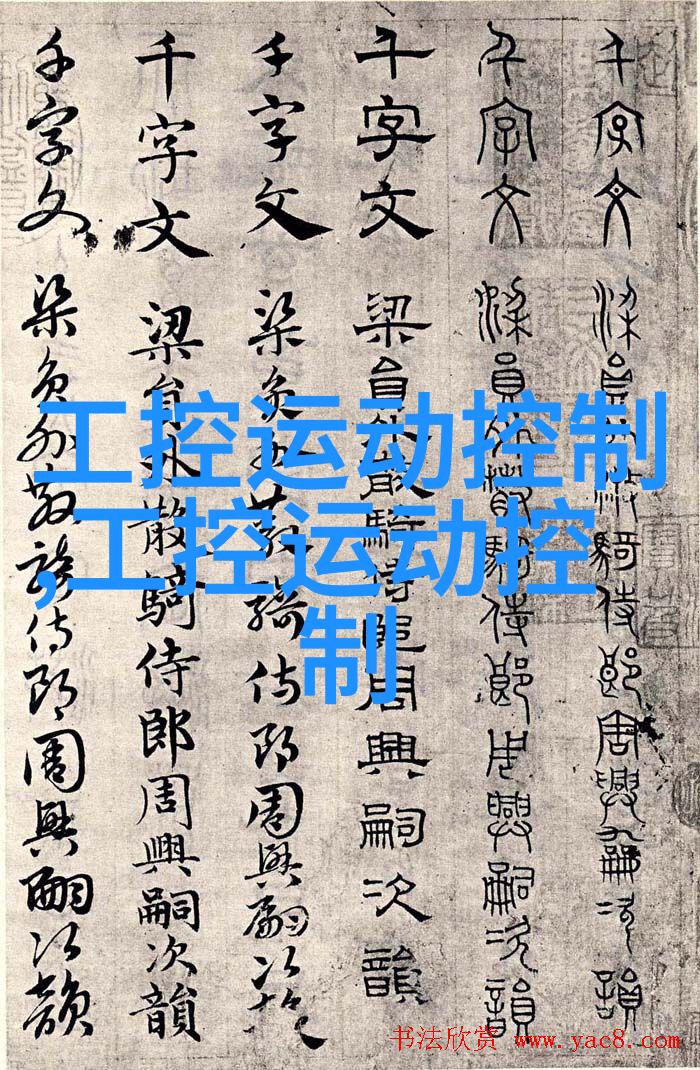 千字文 梁員外散騎侍郎周興嗣次韻
千字文 梁員外散騎侍郎周興嗣次韻
千字文 梁員外散騎侍郎周興嗣次韻
千字文 梁員外散騎侍郎周興嗣次韻
千字文 梁員外散騎侍郎周興嗣次韻
千字文 梁員外散騎侍郎周興嗣次韻
工控运动控制
,工控运动控
制
书法欣赏 www.yac8.com